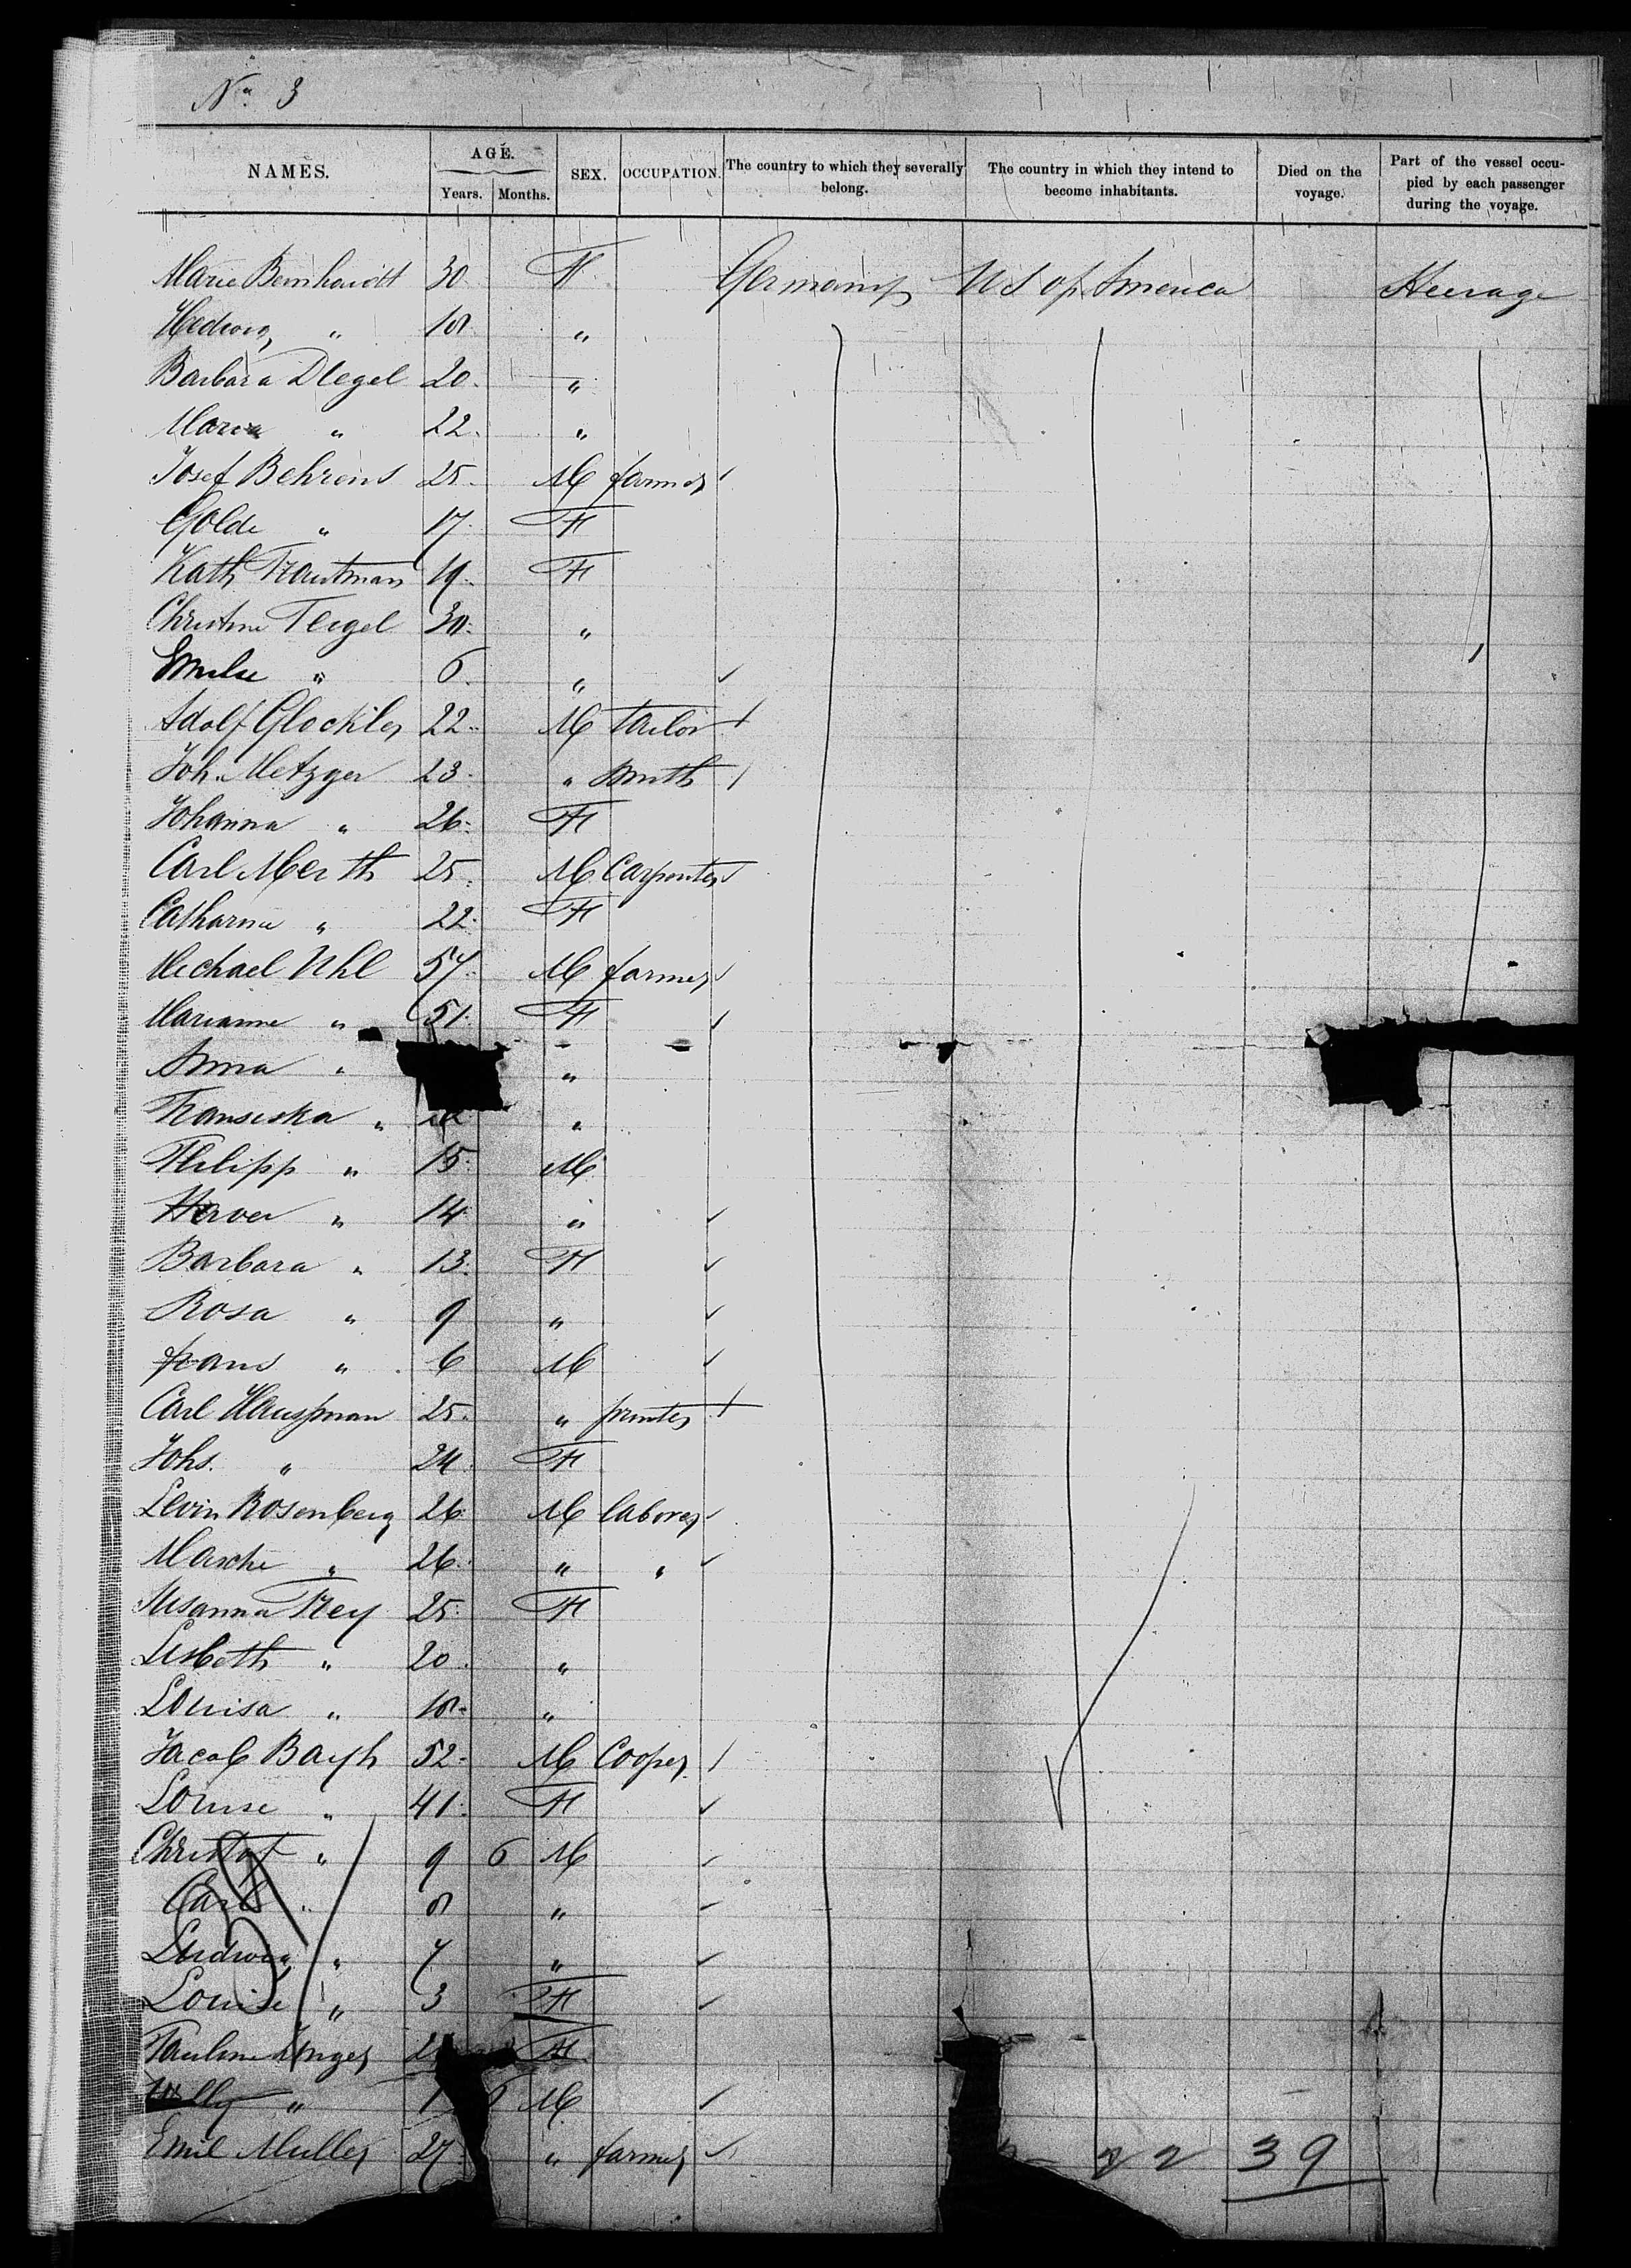 No. 3
NAMES. AGE. Years. Months. SEX. OCCUPATION. The country to which they severally belong. The country in which they intend to become inhabitants. Died on the voyage. Part of the vessel occupied by each passenger during the voyage.
Marie Bernhardt 30 F Germany U S of America Steerage
Hedwig " 18 "
Barbara Dlegel 20 "
Maria " 22 "
Josef Behrens 25 M farmer
Golde " 17 F
Kath Trautman 19 F
Christine Flegel 30 "
Emilie " 6 "
Adolf Glockler 22 M tailor
Joh. Metzger 23 " smith
Johanna " 26 F
Carl Merth 25 M Carpenter
Catharina " 22 F
Michael Uhl 57 M farmer
Marianne " 51 F
Anna " "
Franseska " "
Philipp " 15 M
" 14 "
Barbara " 13 F
Rosa " 9 "
frans " 6 M
Carl Hausman 25 " printer
Johs. " 24 F
Levin Rosenberg 26 M laborer
Masche " 26 " "
Susanna Frey 25 F
Lisbeth " 20 "
Louisa " 18 "
Jacob Bayh 52 M Cooper
Louise " 41 F
Christof " 9 6 M
Carl " 8 "
Ludwig " 7 "
Louise " 3 F
Pauline Unger F
Willy " 1 M
Emil Muller 27 " farmer
22 39